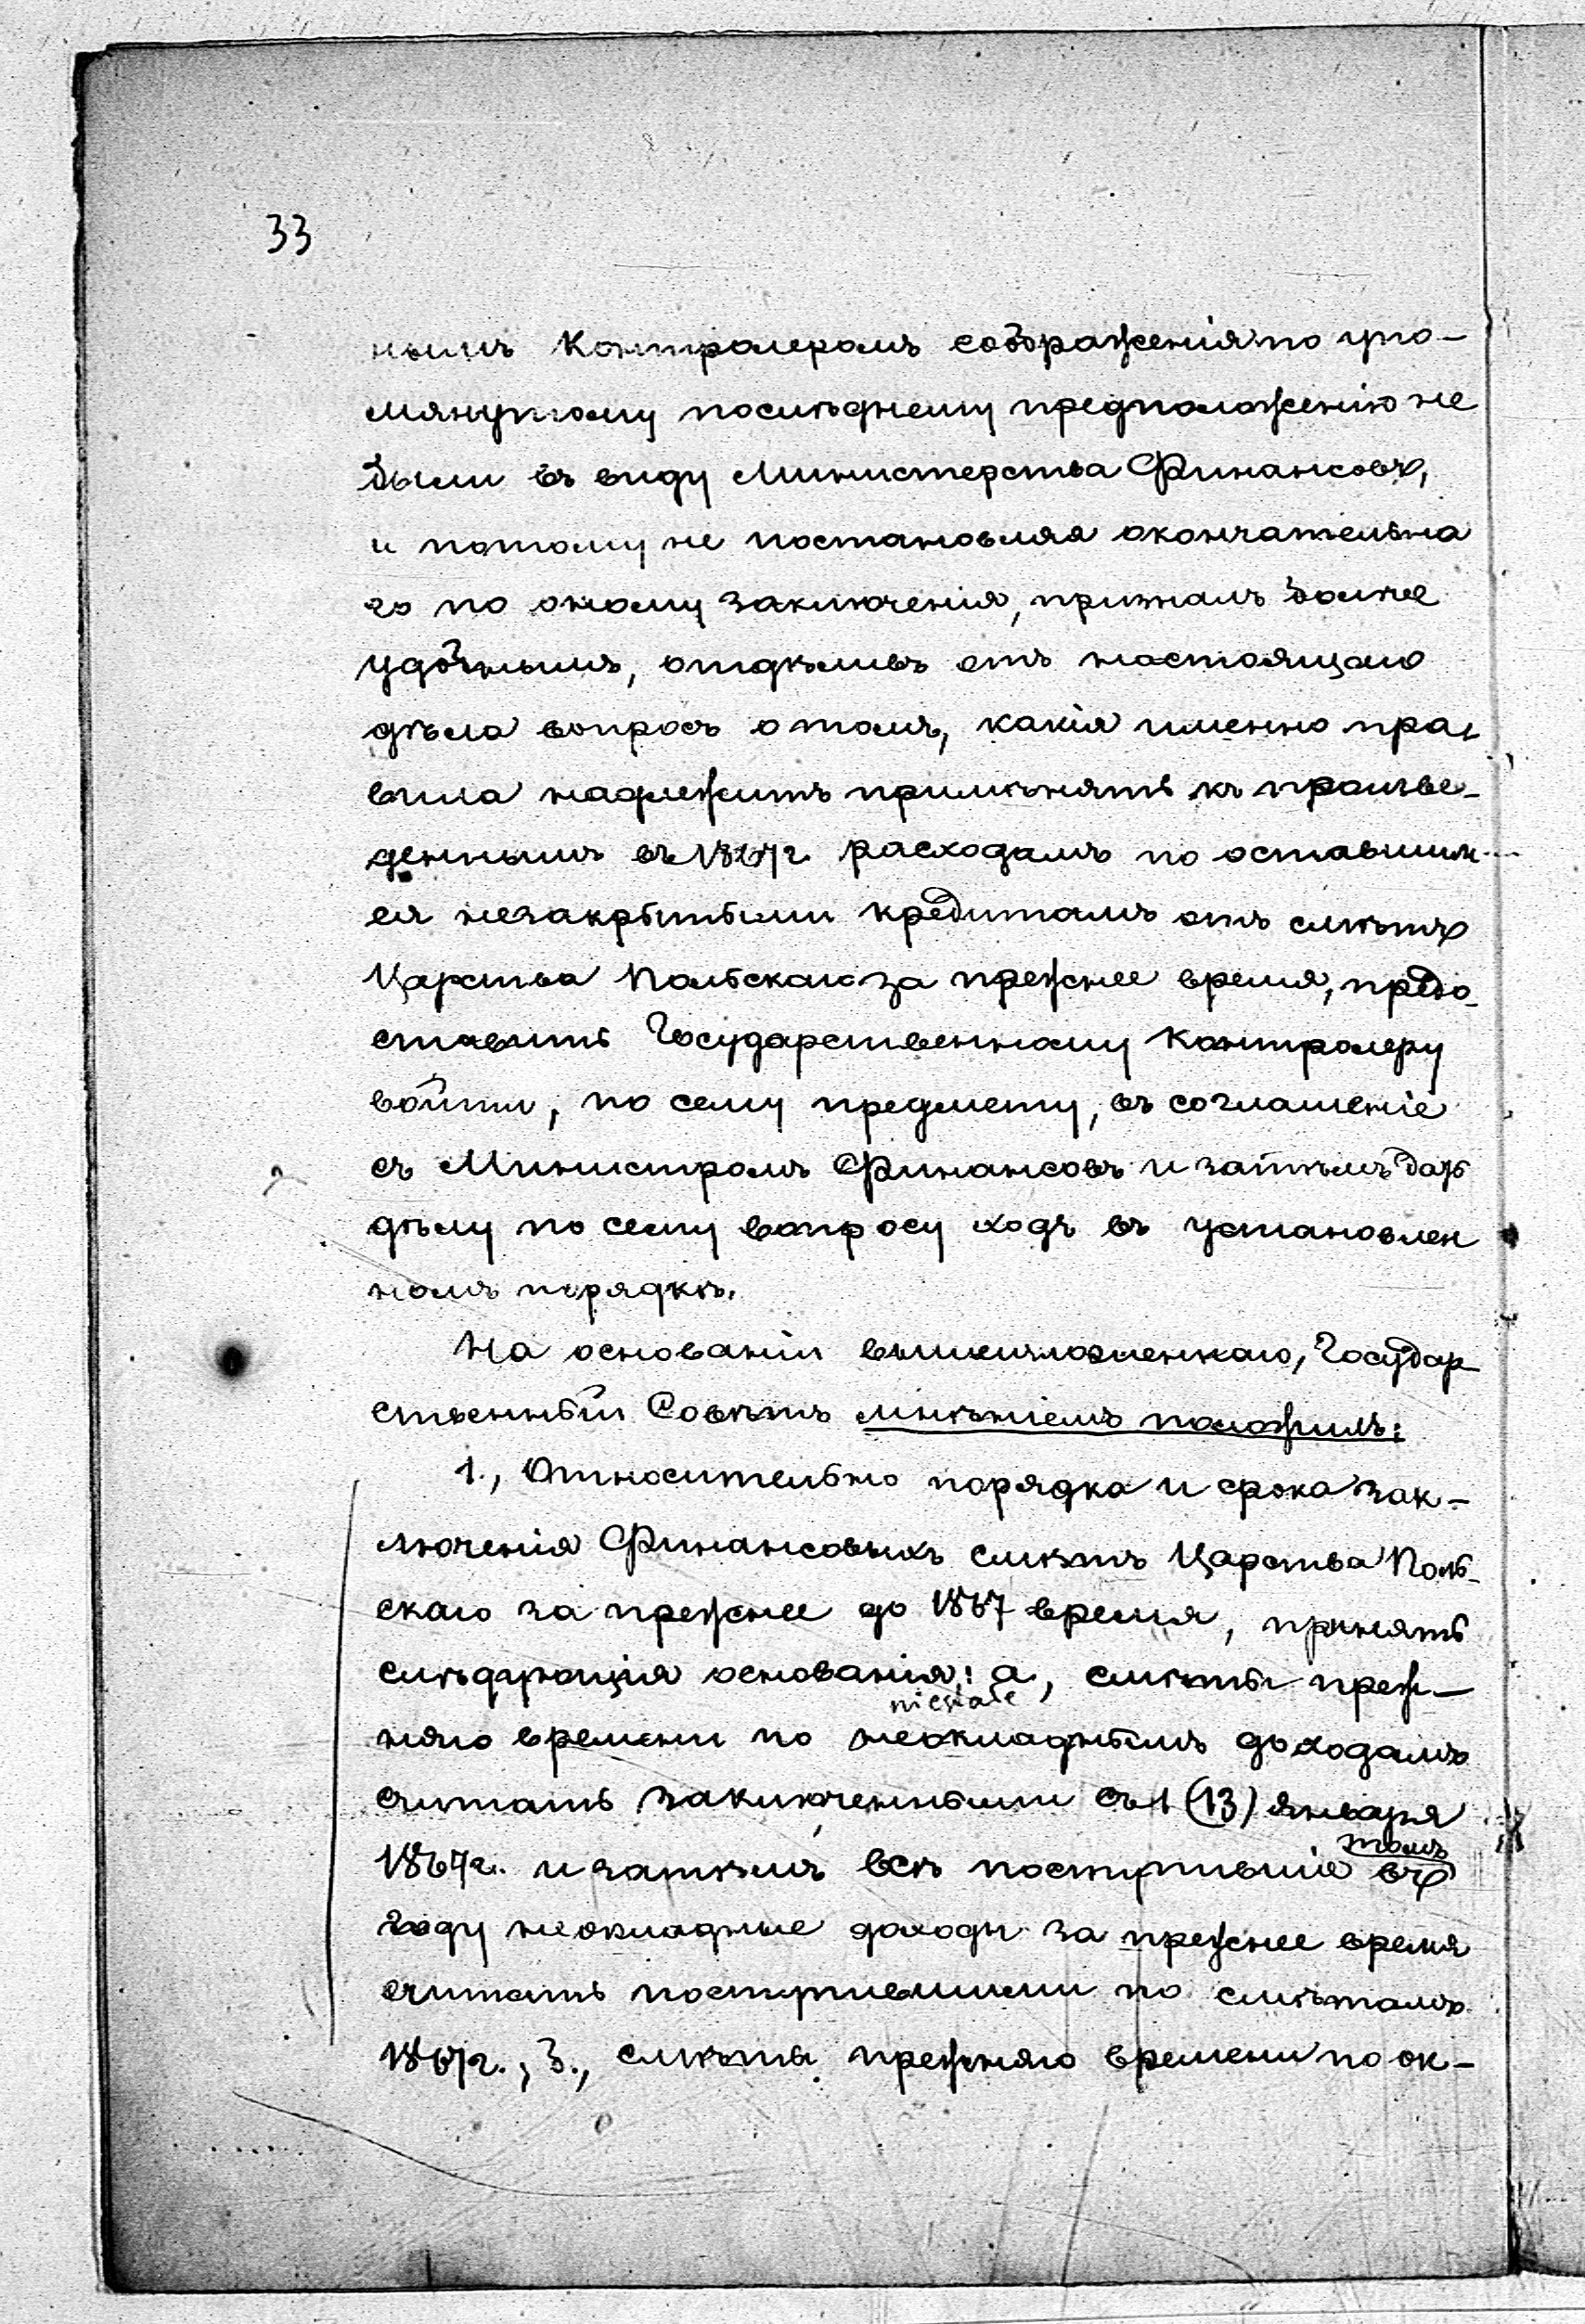 33
нымъ Контролеромъ соображенія по упо-
мянутому послѣднему предположенію не
были въ виду Министерства Финансовъ,
и потому не постановляя окончательна
го по оному заключенія, призналъ болѣе
удобнымъ, отдѣливъ отъ настоящаго
дѣла вопросъ о томъ, какія именно пра-
вила надлежитъ примѣнять къ произве-
деннымъ въ 1867г. расходамъ по оставшим-
ся незакрытыми кредитамъ отъ смѣтъ
Царства Польскаго за прежнее время, предо-
ставить Государственному Контролеру
войти, по сему предмету, въ соглашеніе
съ Министромъ Финансовъ и затѣмъ дать
дѣлу по сему вопросу ходъ въ установлен
номъ порядкѣ.
На основаніи вышеизложеннаго, Государ-
ственный Совѣтъ мнѣніемъ положилъ:
1., Относительно порядка и срока зак-
люченія Финансовыхъ смѣтъ Царства Поль-
скаго за прежнее до 1867 время, принять
слѣдующія основанія: а, смѣты преж-
niestałe
няго времени по неокладнымъ доходамъ
считать заключенными съ 1 (13) Января
томъ
1867г. и затѣмъ всѣ поступившія въ
году неокладные доходы за прежнее время
считать поступившими по смѣтамъ
1867г., З., смѣты прежняго времени по ок-